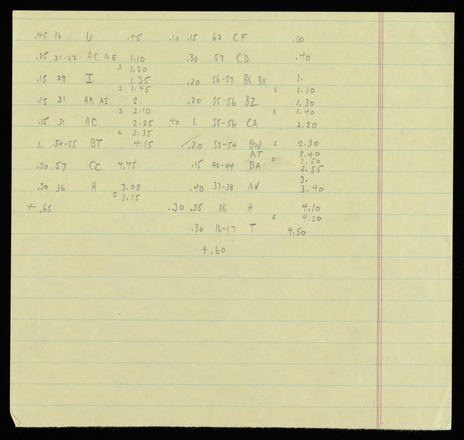 .45 16 U .45 .10 .15 62 CF .10
.25 21-22 AC AE 1.10 .30 57 CD .40
s 1.20
.15 29 I 1.35 .20 56-57 BX BX 1.
s 1.45 s 1.10
.15 31 AR AS 2. .20 55-56 BZ 1.30
s 2.10 s 1.40
.15 31 AC 2.25 .40 1. 55-56 CA 2.20
s 2.35
1. 54-55 BT 4.15 .20 53-54 BW s 2.30
AT 2.40
.30 57 CC 4.45 .15 BA s 2.50
2.55
3.
.30 36 H 3.05 .40 37-38 AV 3.40
s 3.15
+ .65 .30 .35 36 H 4.10
s 4.20
.30 16-17 T 4.50
+ .60